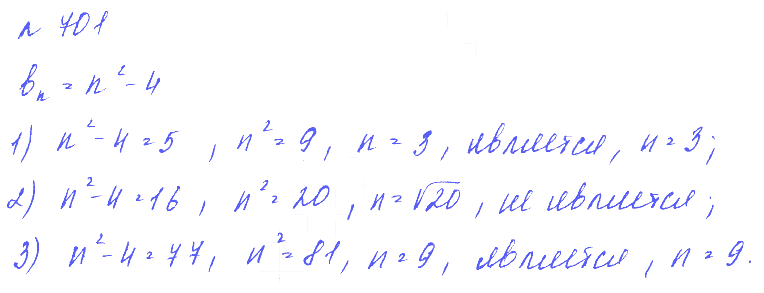 № 701
bₙ = n² - 4
1) n² - 4 = 5, n² = 9, n = 3, является, n = 3;
2) n² - 4 = 16, n² = 20, n = √20, не является;
3) n² - 4 = 77, n² = 81, n = 9, является, n = 9.